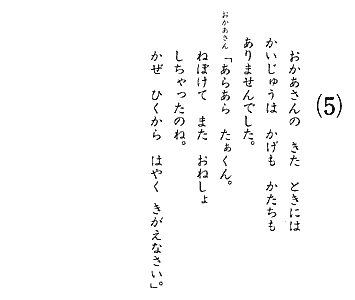 (5)
おかあさんの　きた　ときには
かいじゅうは　かげも　かたちも
ありませんでした。
おかあさん「あらあら　たぁくん。
ねぼけて　また　おねしょ
しちゃったのね。
かぜ　ひくから　はやく　きがえなさい」。